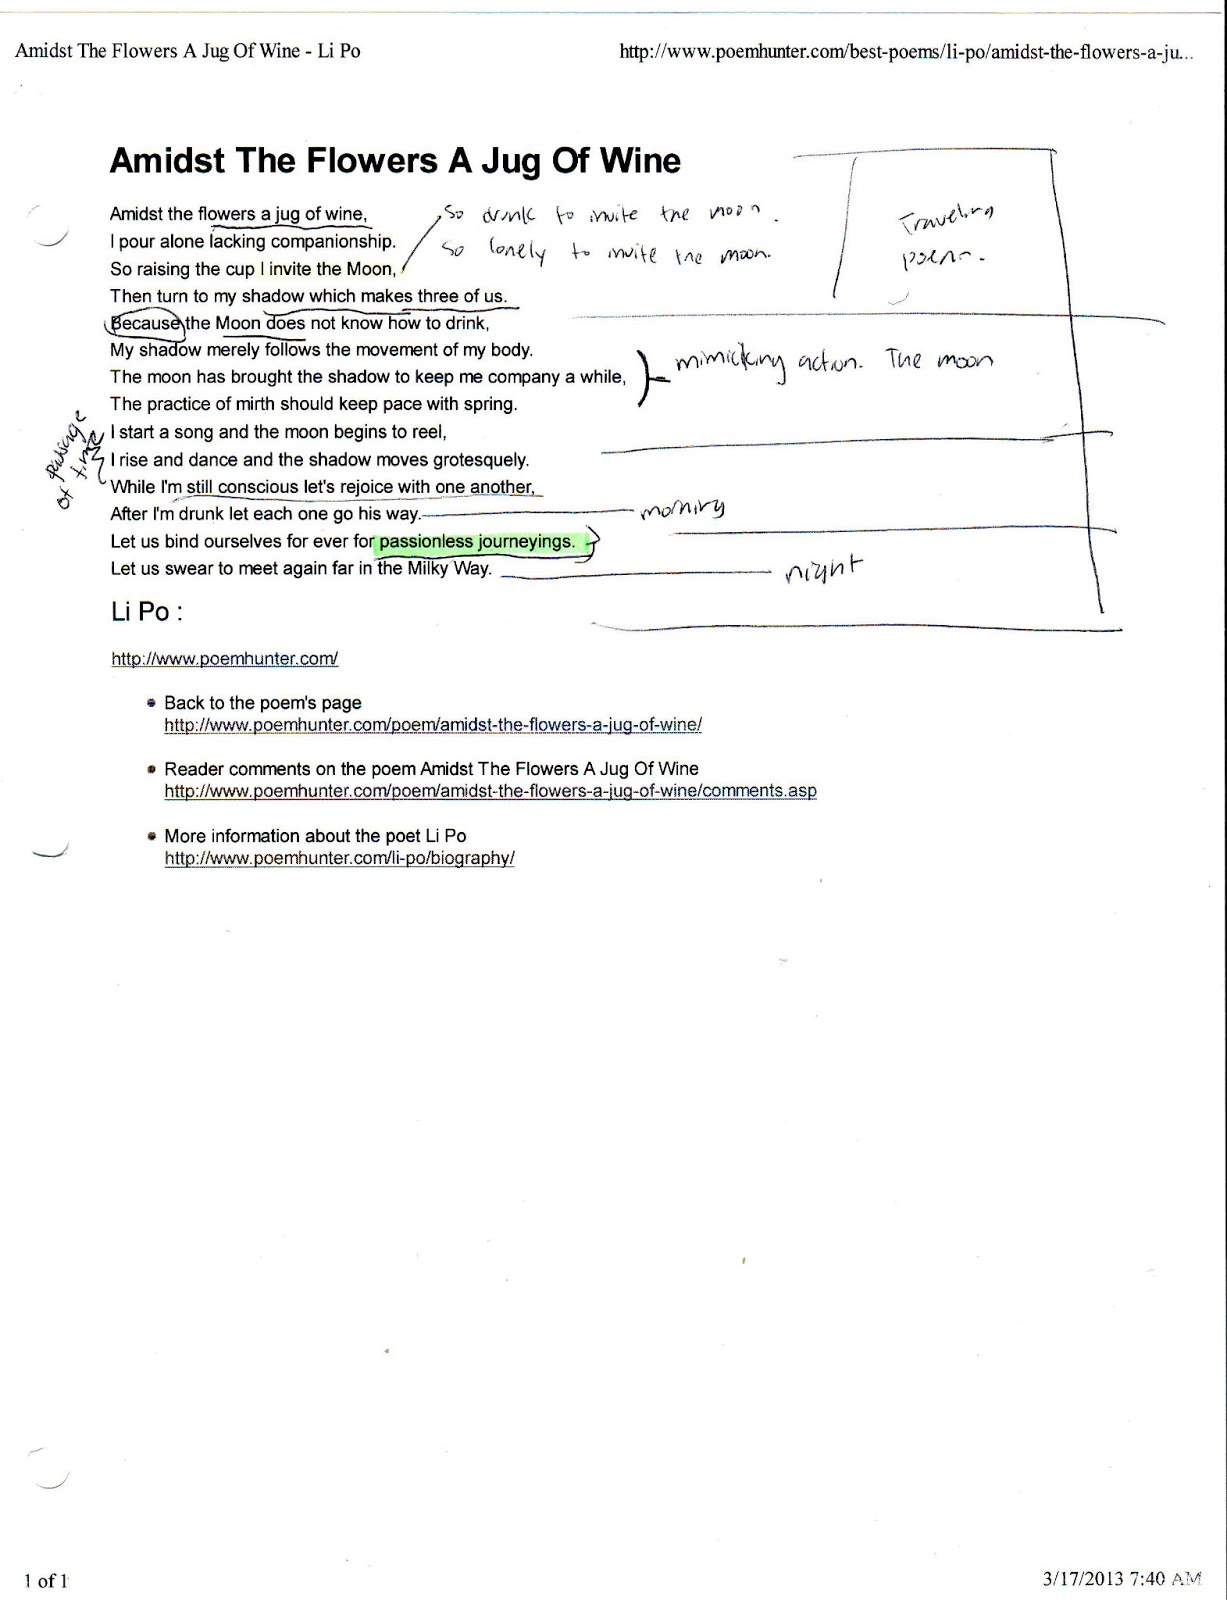 Amidst The Flowers A Jug Of Wine - Li Po
http://www.poemhunter.com/best-poems/li-po/amidst-the-flowers-a-ju...
Amidst The Flowers A Jug Of Wine
Amidst the flowers a jug of wine,
So drunk to invite the moon.
I pour alone lacking companionship.
So lonely to invite the moon.
Traveling
poem.
So raising the cup I invite the Moon,
Then turn to my shadow which makes three of us.
Because the Moon does not know how to drink,
My shadow merely follows the movement of my body.
mimicking action. The moon
The moon has brought the shadow to keep me company a while,
The practice of mirth should keep pace with spring.
passage
of time
I start a song and the moon begins to reel,
I rise and dance and the shadow moves grotesquely.
While I'm still conscious let's rejoice with one another,
After I'm drunk let each one go his way.
morning
Let us bind ourselves for ever for passionless journeyings.
Let us swear to meet again far in the Milky Way.
night
Li Po :
http://www.poemhunter.com/
• Back to the poem's page
http://www.poemhunter.com/poem/amidst-the-flowers-a-jug-of-wine/
• Reader comments on the poem Amidst The Flowers A Jug Of Wine
http://www.poemhunter.com/poem/amidst-the-flowers-a-jug-of-wine/comments.asp
• More information about the poet Li Po
http://www.poemhunter.com/li-po/biography/
1 of 1
3/17/2013 7:40 AM